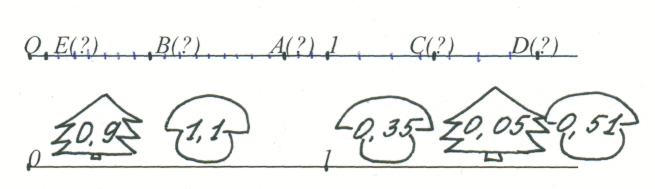 O E(?) B(?) A(?) 1 C(?) D(?)
0,9 1,1 0,35 0,05 0,51
0 1